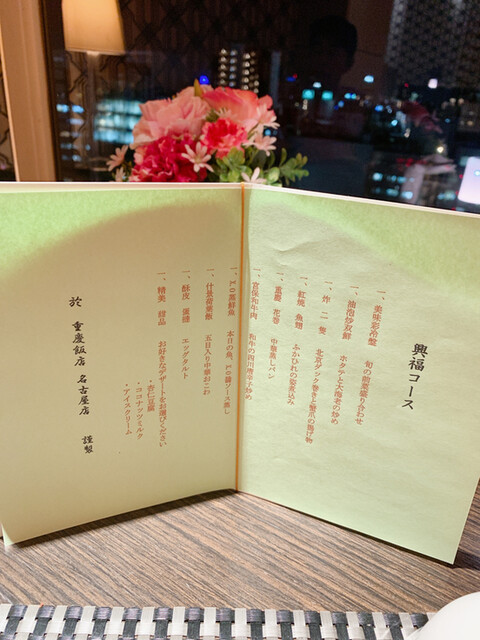 興福コース
一、美味彩冷盤　旬の前菜盛り合わせ
一、油泡炒双鮮　ホタテと大海老の炒め
一、炸二隻　北京ダック巻きと蟹爪の揚げ物
一、紅焼魚翅　ふかひれの姿煮込み
一、重慶花巻　中華蒸しパン
一、宮保和牛肉　和牛の四川唐辛子炒め
一、XO蒸鮮魚　本日の魚、XO醤ソース蒸し
一、什景荷葉飯　五目入り中華おこわ
一、酥皮蛋撻　エッグタルト
一、精美甜品　お好きなデザートをお選びください
・杏仁豆腐
・ココナッツミルク
・アイスクリーム
於　重慶飯店　名古屋店　謹製